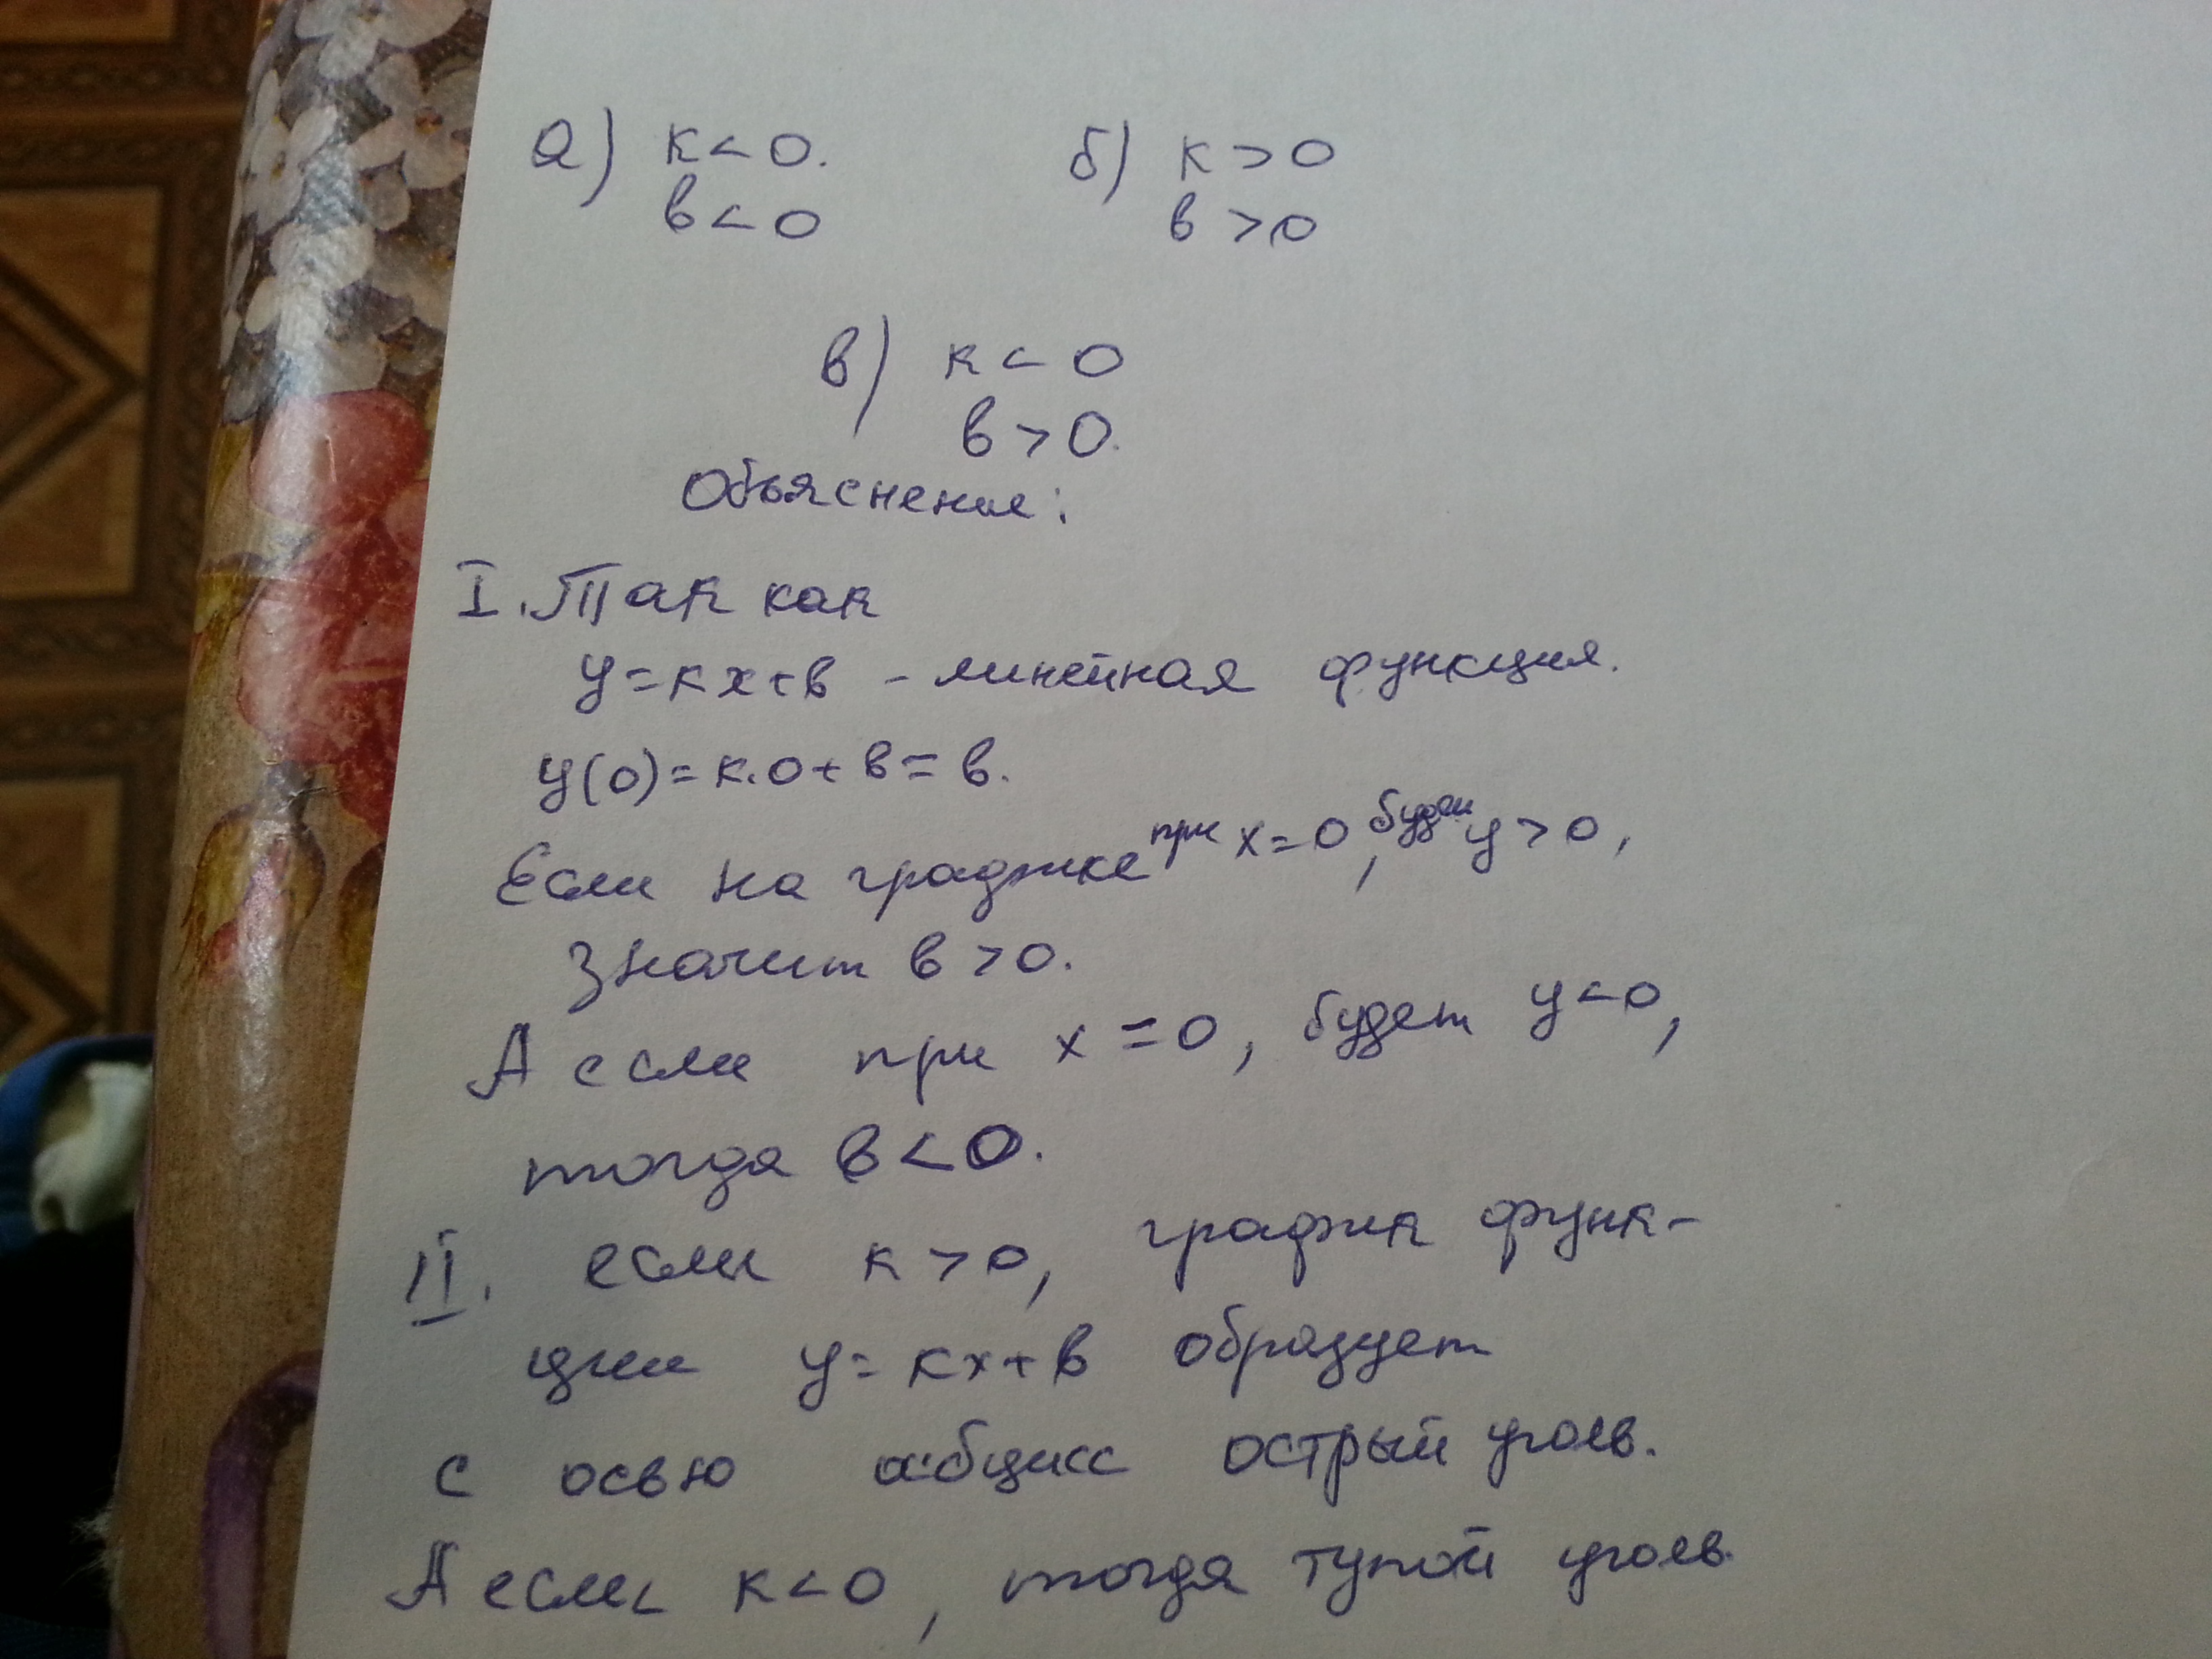 а) к<0. б) к>0
в<0 в>0
в) к<0
в>0.
Объяснение:
I. Так как
у=кх+в - линейная функция.
у(0)=к.0+в=в.
Если на графике при х=0, будет у>0,
значит в>0.
А если при х=0, будет у<0,
тогда в<0.
II. если к>0, график функ-
ции у=кх+в образует
с осью абцисс острый уголь.
А если к<0, тогда тупой уголь.